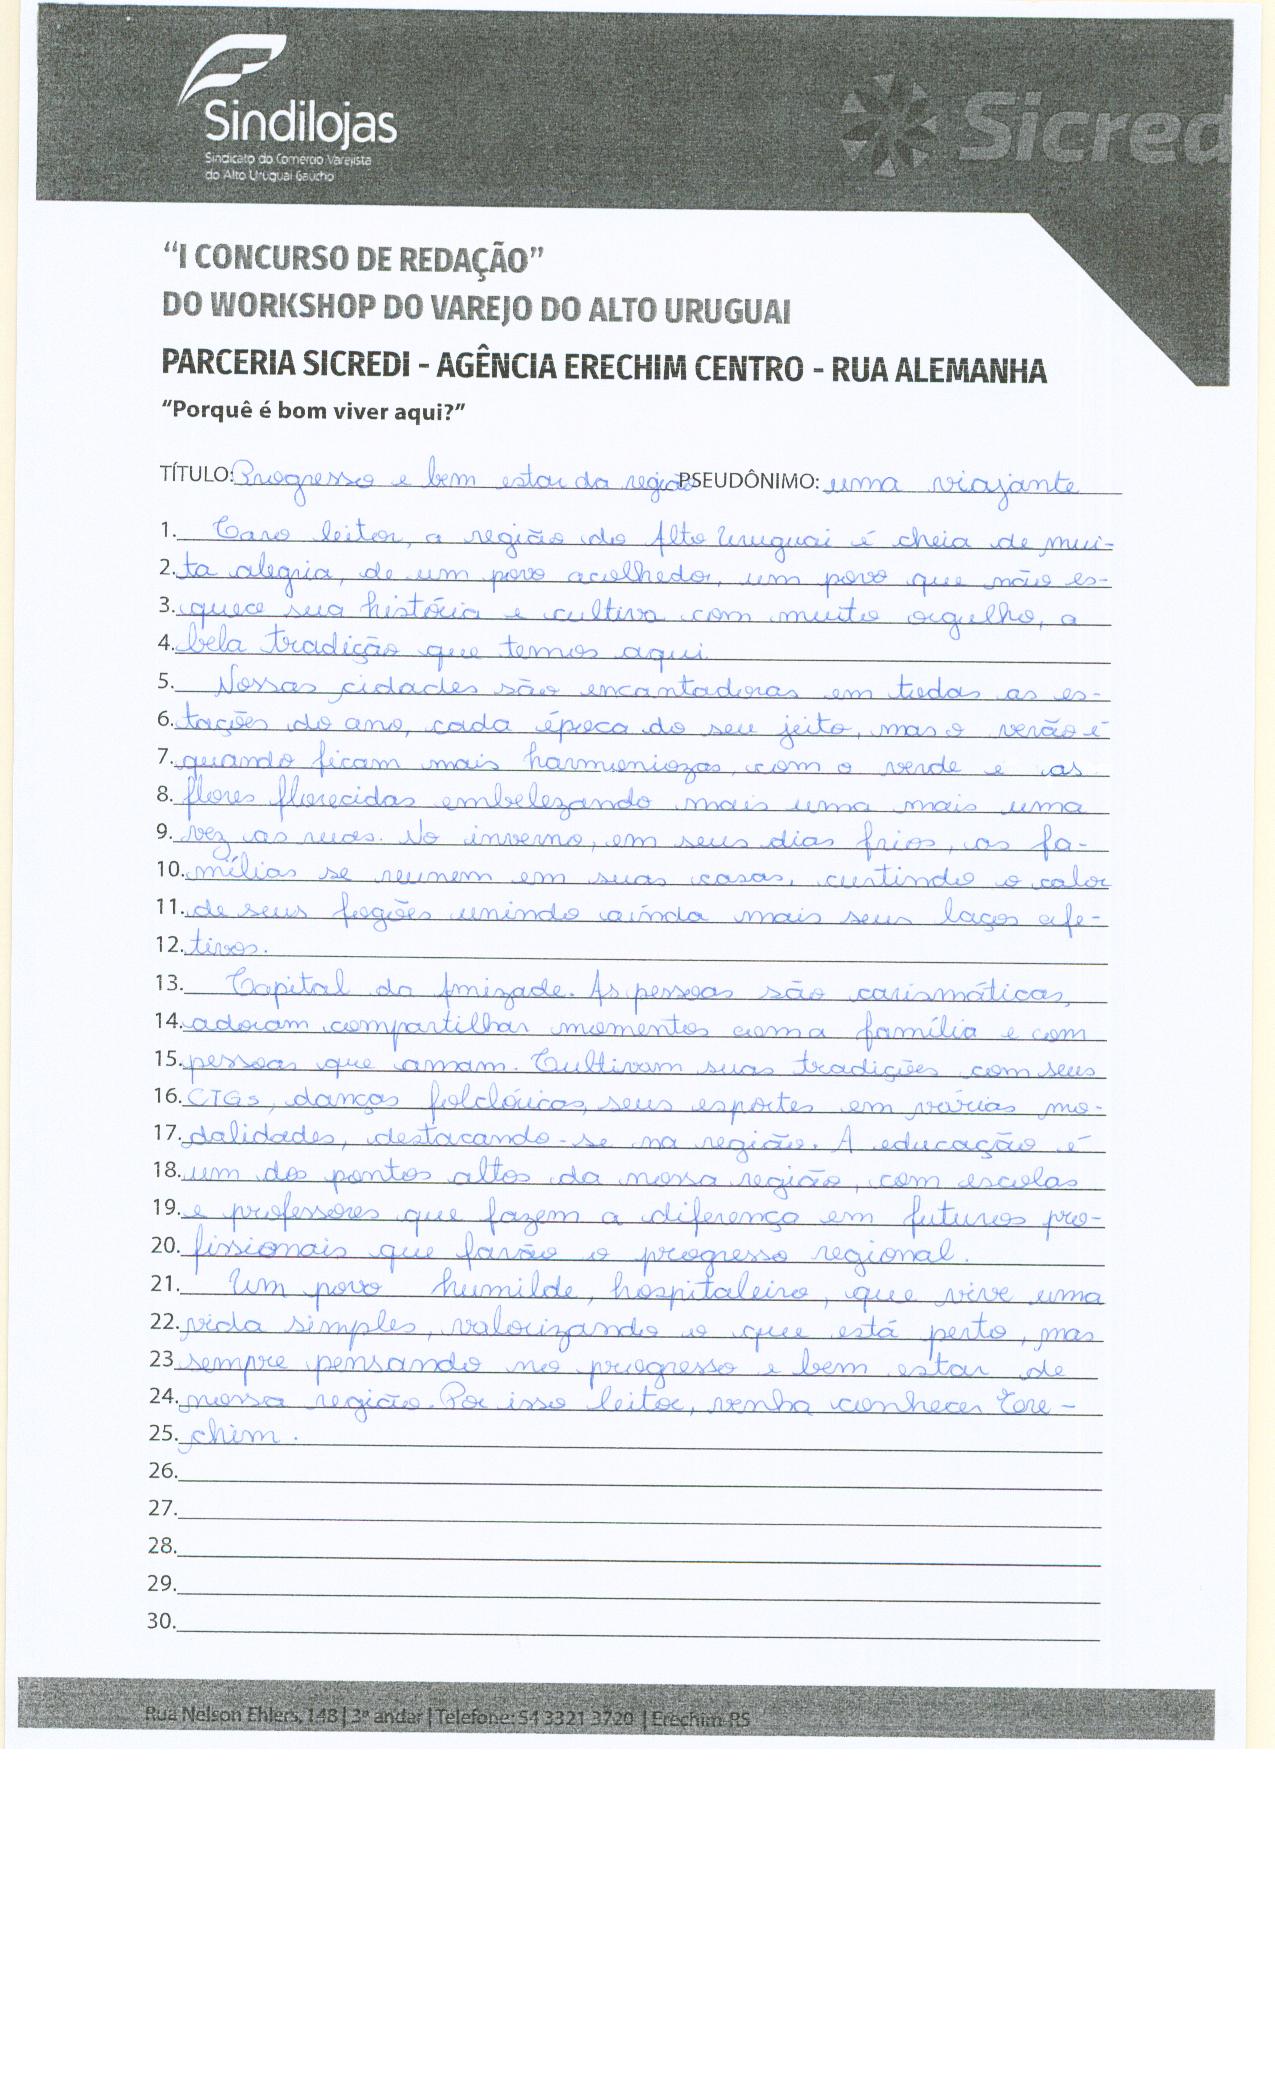 Sindilojas
Sindicato do Comércio Varejista
do Alto Uruguai Gaúcho
Sicred
“I CONCURSO DE REDAÇÃO”
DO WORKSHOP DO VAREJO DO ALTO URUGUAI
PARCERIA SICREDI - AGÊNCIA ERECHIM CENTRO - RUA ALEMANHA
“Porquê é bom viver aqui?”
TÍTULO: Progresso e bem estar da região PSEUDÔNIMO: uma viajante
1. Caro leitor, a região do Alto Uruguai é cheia de mui-
2. ta alegria, de um povo acolhedor, um povo que não es-
3. quece sua história e cultiva com muito orgulho, a
4. bela tradição que temos aqui.
5. Nossas cidades são encantadoras em todas as es-
6. tações do ano, cada época do seu jeito, mas o verão é
7. quando ficam mais harmoniozas, com o verde e as
8. flores florecidas embelezando mais uma mais uma
9. vez as ruas. No inverno, em seus dias frios, as fa-
10. mílias se reunem em suas casas, curtindo o calor
11. de seus fogões unindo ainda mais seus laços afe-
12. tivos.
13. Capital da Amizade. As pessoas são carismáticas,
14. adoram compartilhar momentos com a família e com
15. pessoas que amam. Cultivam suas tradições com seus
16. CTGs, danças folclóricas, seus esportes em várias mo-
17. dalidades, destacando-se na região. A educação é
18. um dos pontos altos da nossa região, com escolas
19. e professores que fazem a diferença em futuros pro-
20. fissionais que farão o progresso regional.
21. Um povo humilde, hospitaleiro, que vive uma
22. vida simples, valorizando o que está perto, mas
23. sempre pensando no progresso e bem estar de
24. nossa região. Por isso leitor, venha conhecer Ere-
25. chim.
26.
27.
28.
29.
30.
Rua Nelson Ehlers, 148 | 3º andar | Telefone: 54 3321 3720 | Erechim-RS